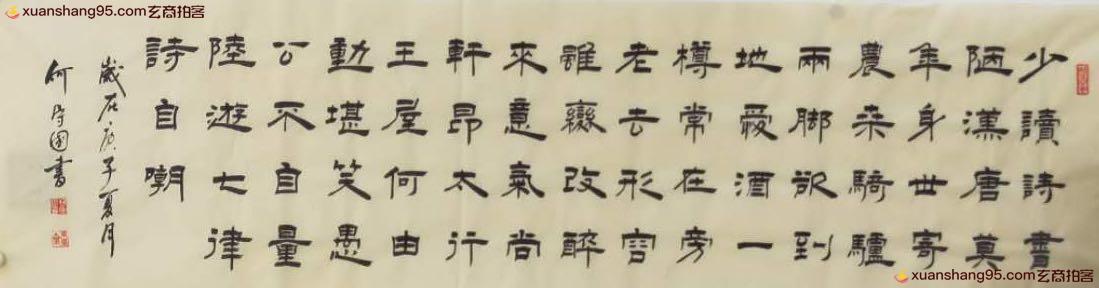 少讀詩書
陋漢唐莫
年身世寄
農桒騎驢
兩脚欲到
地愛酒一
樽常在旁
老去形容
雖變改醉
來意氣尚
軒昂太行
王屋何由
動堪笑愚
公不自量
陸遊七律
詩自嘲
歲在庚子夏月
何國書
xuanshang95.com玄商拍客
xuanshang95.com玄商拍客